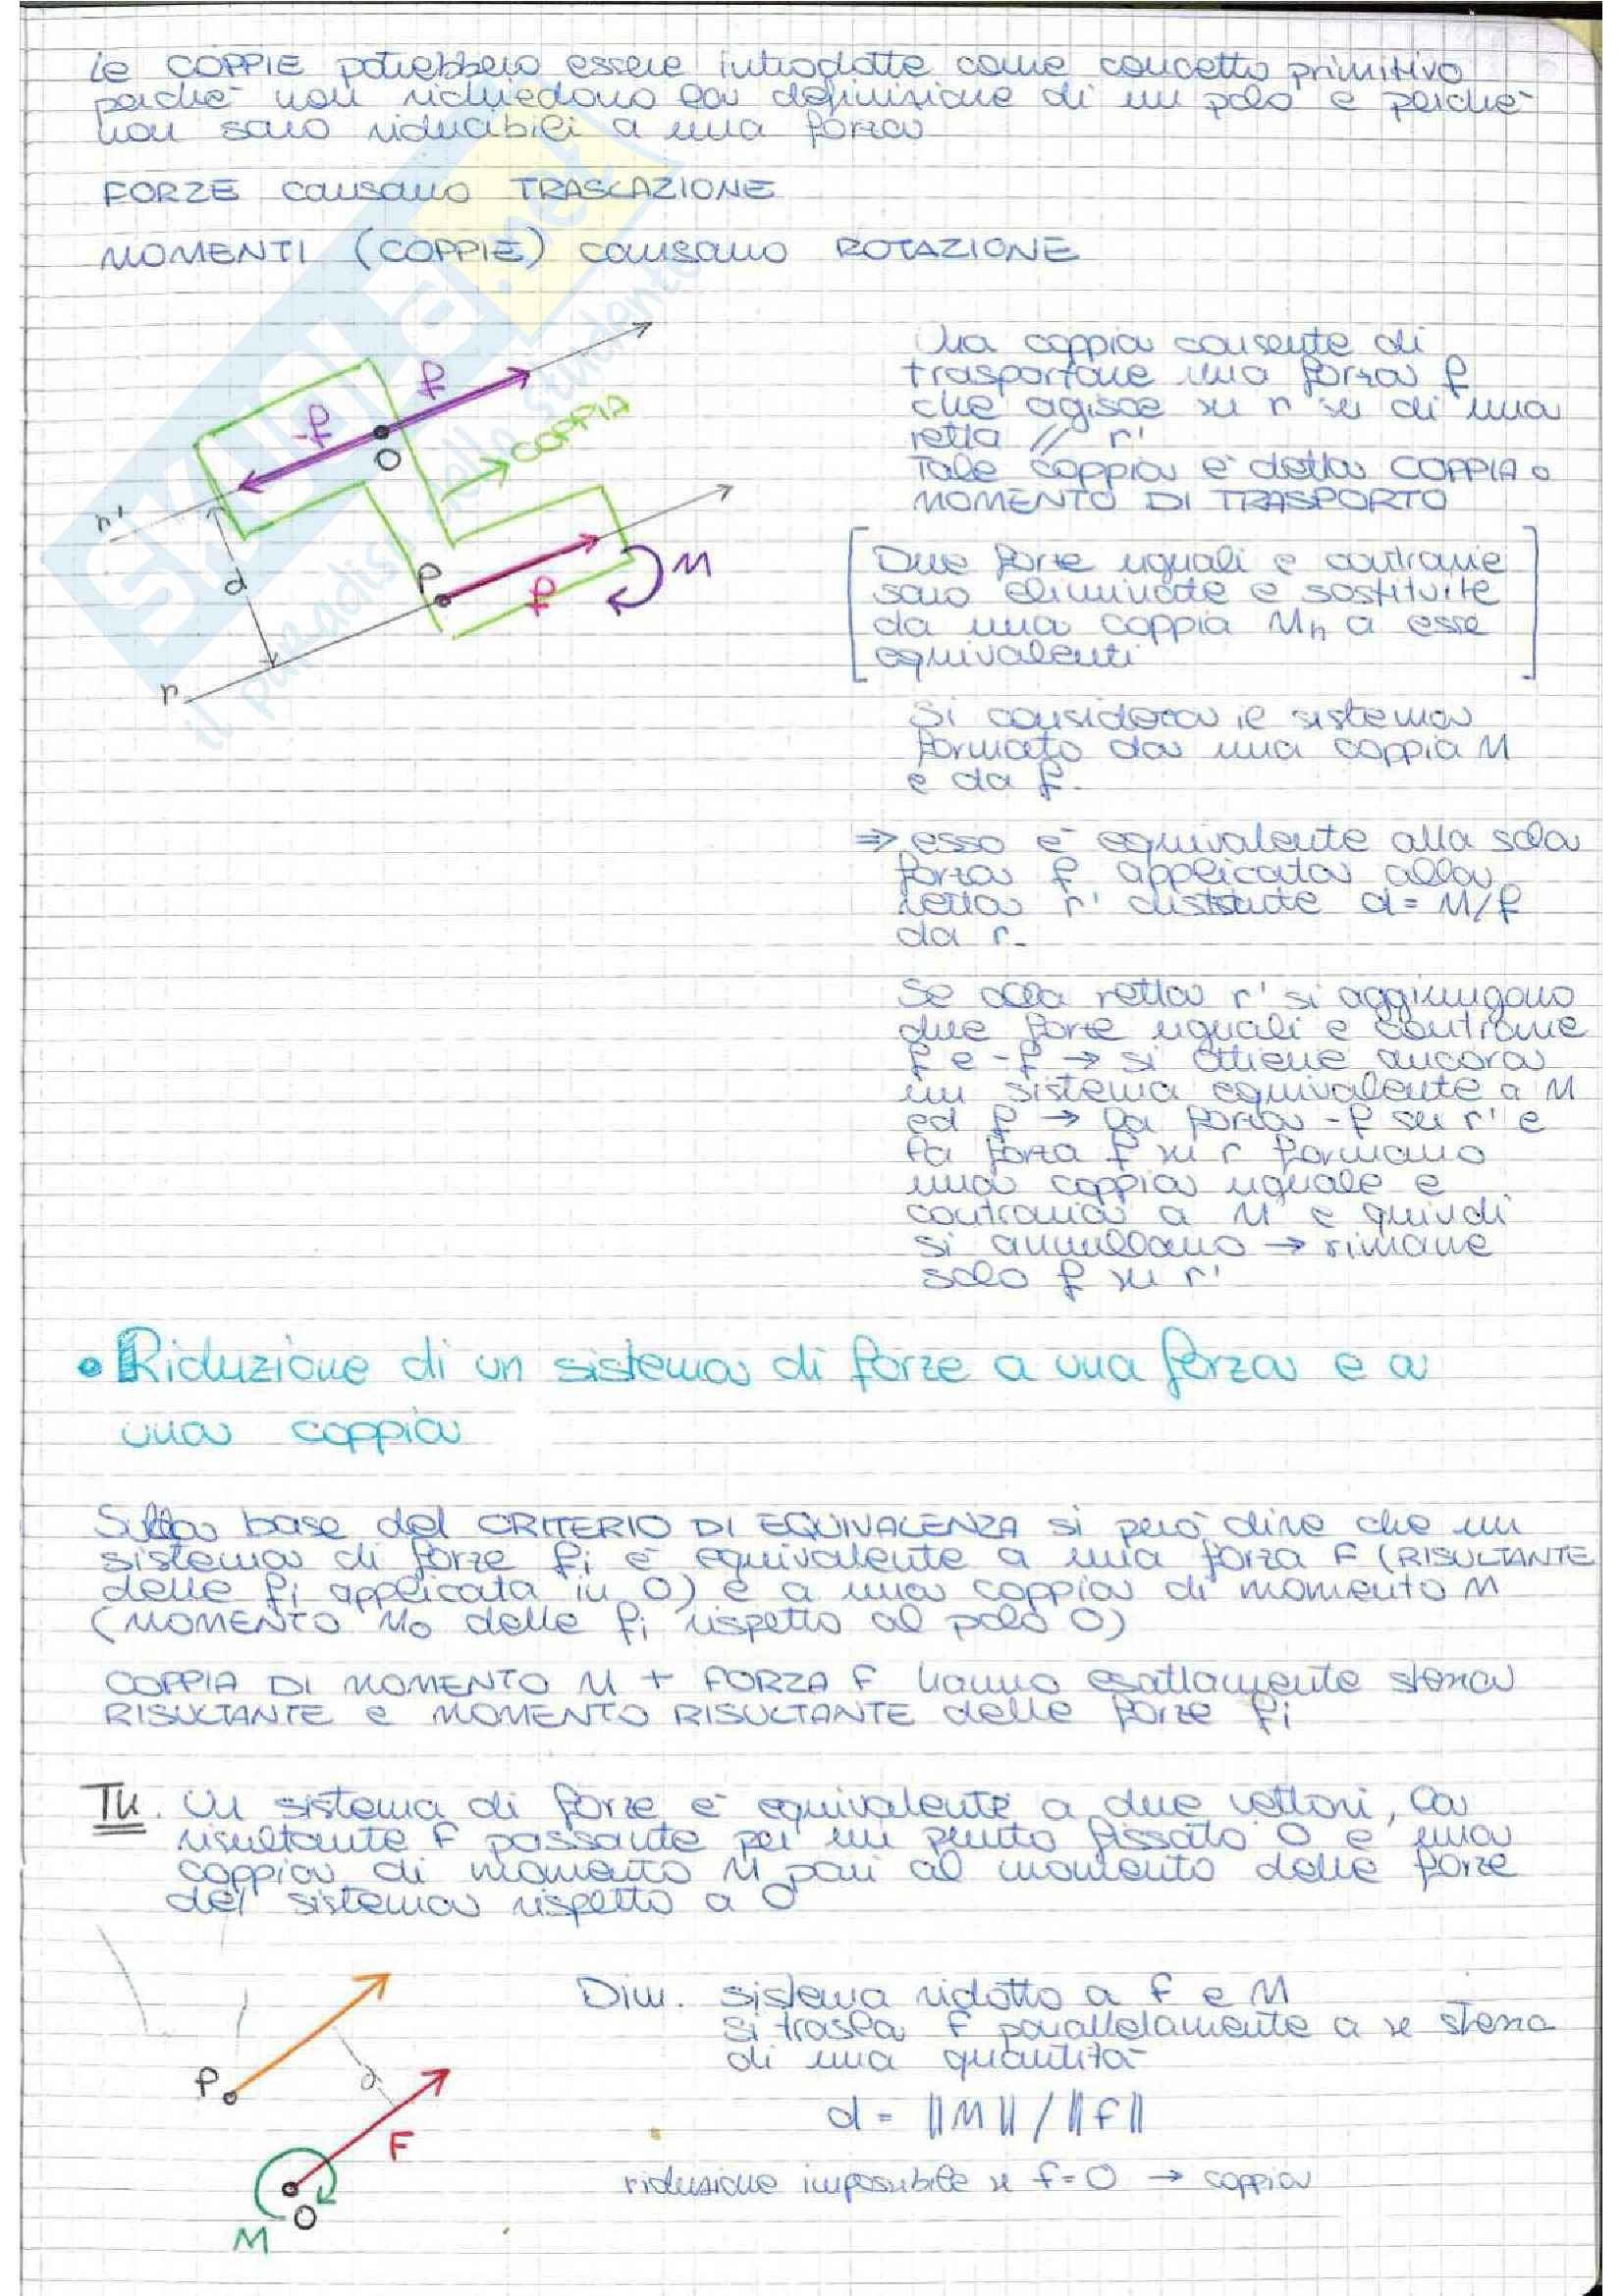 Le COPPIE potrebbero essere introdotte come concetto primitivo
perché non richiedono la definizione di un polo e perché
non sono riducibili a una forza
FORZE causano TRASLAZIONE
MOMENTI (COPPIE) causano ROTAZIONE
f
-f
O
COPPIA
r'
d
P
f
M
r
Una coppia consente di
trasportare una forza f
che agisce su r su di una
retta // r'
Tale coppia è detta COPPIA o
MOMENTO DI TRASPORTO
[Due forze uguali e contrarie
sono eliminate e sostituite
da una coppia Mn a esse
equivalenti]
Si considera il sistema
formato da una coppia M
e da f.
⇒ esso è equivalente alla sola
forza f applicata alla
retta r' distante d = M/f
da r.
Se alla retta r' si aggiungono
due forze uguali e contrarie
f e -f → si ottiene ancora
un sistema equivalente a M
ed f → la forza -f su r' e
la forza f su r formano
una coppia uguale e
contraria a M e quindi
si annullano → rimane
solo f su r'
• Riduzione di un sistema di forze a una forza e a
una coppia
Sulla base del CRITERIO DI EQUIVALENZA si può dire che un
sistema di forze fi è equivalente a una forza F (RISULTANTE
delle fi applicata in O) e a una coppia di momento M
(MOMENTO Mo delle fi rispetto al polo O)
COPPIA DI MOMENTO M + FORZA F hanno esattamente stessa
RISULTANTE e MOMENTO RISULTANTE delle forze fi
TH. Un sistema di forze è equivalente a due vettori, la
risultante F passante per un punto fissato O e una
coppia di momento M pari al momento delle forze
del sistema rispetto a O
P
d
F
O
M
Dim. sistema ridotto a F e M
si trasla F parallelamente a se stessa
di una quantità
d = ||M|| / ||F||
riduzione impossibile se F=0 → coppia
skuola.net
il paradiso dello studente